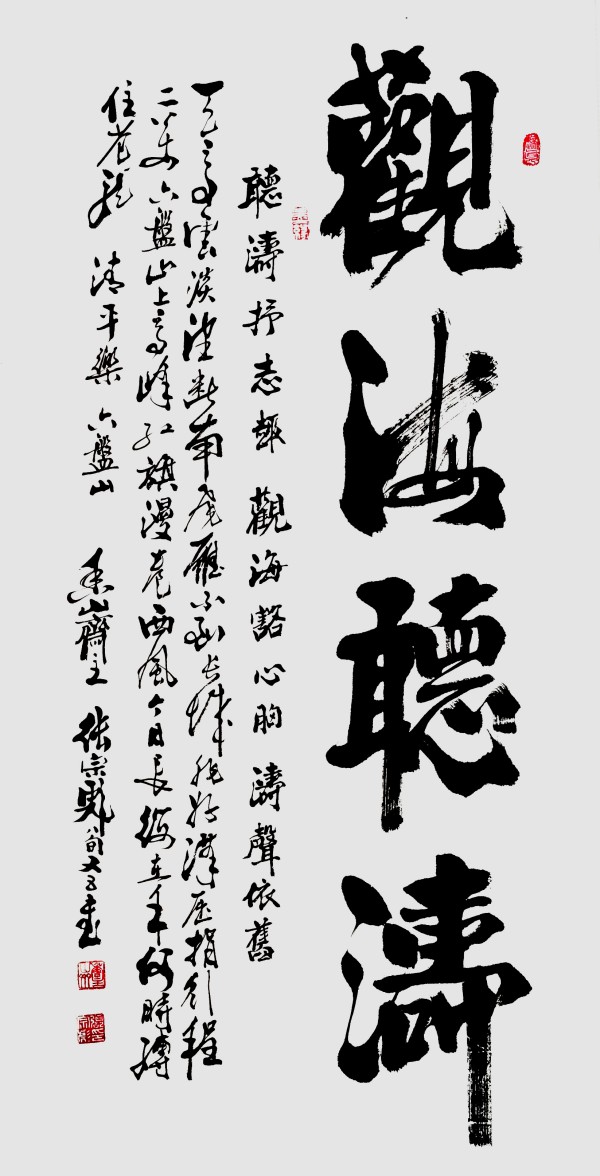 觀海聽濤
聽濤抒志趣 觀海豁心胸 濤聲依舊
天高雲淡望斷南飛雁不到長城非好漢屈指行程
二萬六盤山上高峰紅旗漫卷西風今日長纓在手何時縛
住蒼龍 清平樂 六盤山 山齋主 張宗 書